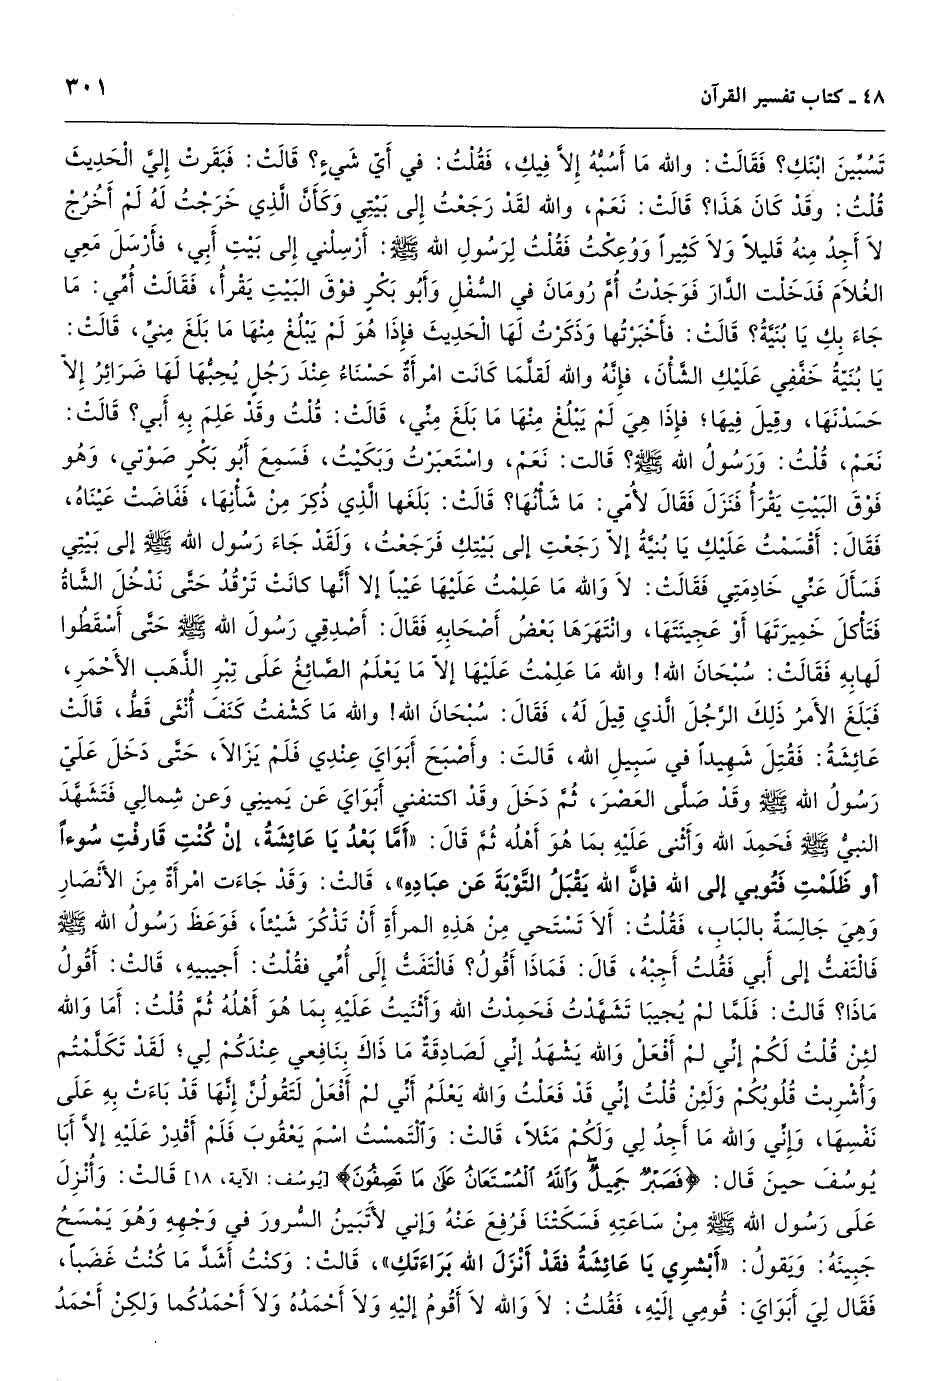 ٤٨ ـ كتاب تفسير القرآن
٣٠١
تَسُبِّينَ ابْنَكِ؟ فَقَالَتْ: والله مَا أَسُبُّهُ إِلاَّ فِيكِ، فَقُلْتُ: في أَيِّ شَيءٍ؟ قَالَتْ: فَبَقَرتْ إِليَّ الْحَدِيثَ
قُلْتُ: وقَدْ كَانَ هَذَا؟ قالَتْ: نَعَمْ، والله لقَدْ رَجَعْتُ إلى بَيْتِي وَكَأَنَّ الَّذِي خَرَجْتُ لَهُ لَمْ أَخْرُجْ
لاَ أَجِدُ مِنهُ قَلِيلاً وَلاَ كَثِيراً وَوُعِكْتُ فَقُلْتُ لِرَسُولِ الله ﷺ: أَرْسِلْنِي إلى بَيْتِ أَبِي، فَأَرْسَلَ مَعِي
الغُلاَمَ فَدَخَلْت الدَّارَ فَوَجَدْتُ أُمَّ رُومَانَ في السُّفْلِ وَأَبُو بَكْرٍ فَوْقَ البَيْتِ يَقْرَأُ، فَقَالَتْ أُمِّي: مَا
جَاءَ بِكِ يَا بُنَيَّةُ؟ قَالَتْ: فأَخْبَرْتُها وَذَكَرْتُ لَهَا الْحَدِيثَ فإِذَا هُوَ لَمْ يَبْلُغْ مِنْهَا مَا بَلَغَ مِنيِّ، قَالَتْ:
يَا بُنَيَّةُ خَفِّفِي عَلَيْكِ الشَّأْنَ، فإِنَّهُ والله لَقلَّمَا كَانَت امْرأَةٌ حَسْنَاءُ عِنْدَ رَجُلٍ يُحِبُّهَا لَهَا ضَرَائِرُ إِلاَّ
حَسَدْنَهَا، وقِيلَ فِيهَا؛ فإِذَا هِيَ لَمْ يَبْلُغْ مِنْهَا مَا بَلَغَ مِنِّي، قَالَتْ: قُلْتُ وقَدْ عَلِمَ بِهِ أَبي؟ قَالَتْ:
نَعَمْ، قُلْتُ: وَرَسُولُ الله ﷺ؟ قالت: نَعَمْ، واسْتَعبَرْتُ وَبَكَيْتُ، فَسَمِعَ أَبُو بَكْرٍ صَوْتي، وَهُو
فَوْقَ البَيْتِ يَقْرَأُ فَنَزَلَ فَقَالَ لأُمّي: مَا شَأْنُهَا؟ قَالَتْ: بَلَغَها الَّذِي ذُكِرَ مِنْ شَأْنِهَا، فَفَاضَتْ عَيْنَاهُ،
فَقَالَ: أَقْسَمْتُ عَلَيْكِ يَا بُنَيَّةُ إِلاّ رَجَعْتِ إلى بَيْتِكِ فَرَجَعْتُ، وَلَقَدْ جَاءَ رَسُول الله ﷺ إلى بَيْتِي
فَسَأَلَ عَنِّي خَادِمَتِي فَقَالَتْ: لاَ وَالله مَا عَلِمْتُ عَلَيْهَا عَيْباً إلا أَنَّها كانَتْ تَرْقُدُ حَتَّى تَدْخُلَ الشَّاةُ
فَتَأْكلَ خَمِيرَتَهَا أَوْ عَجِينَتَهَا، وانْتَهَرَهَا بَعْضُ أَصْحَابِهِ فَقَالَ: أَصْدِقِي رَسُولَ الله ﷺ حَتَّى أَسْقَطُوا
لَهابِهِ فَقَالَتْ: سُبْحَانَ الله! والله مَا عَلِمْتُ عَلَيْهَا إِلاّ مَا يَعْلَمُ الصَّائِغُ عَلَى تِبْرِ الذَّهَب الأَحْمَرِ،
فَبَلَغَ الأَمرُ ذَلِكَ الرَّجُلَ الَّذي قِيلَ لَهُ، فَقَالَ: سُبْحَانَ الله! والله مَا كَشْفتُ كَنَفَ أُنْثَى قَطُّ، قَالَتْ
عَائِشَةُ: فَقُتِلَ شَهِيداً في سَبِيلِ الله، قَالتَ: وأَصْبَحَ أَبَوَايَ عِنْدِي فَلَمْ يَزَالاَ، حَتَّى دَخَلَ عَلَيّ
رَسُولُ الله ﷺ وقَد صَلَّى العَصْرَ، ثُمَّ دَخَلَ وقَد اكتنفني أَبَوَايَ عَن يَمِيني وَعن شِمالِي فَتَشَهَّدَ
النبيُّ ﷺ فَحَمِدَ الله وَأَثْنى عَلَيْهِ بمَا هُوَ أَهْلُه ثُمَّ قَالَ: «أَمَّا بَعْدُ يا عَائِشَةُ، إنْ كُنْتِ قارفْتِ سُوءاً
أو ظَلَمْتِ فَتُوبي إلى الله فإنَّ الله يَقْبَلُ التَّوْبَةَ عَن عبَادِهِ»، قَالَتْ: وَقَدْ جَاءَت امْرأَةٌ مِنَ الأَنْصَارِ
وَهِيَ جَالِسَةٌ بالبَابِ، فَقُلْتُ: أَلاَ تَسْتَحي مِنْ هَذِهِ المرأَةِ أَنْ تَذْكُرَ شَيْئاً، فَوَعَظَ رَسُولُ الله ﷺ
فَالْتَفتُّ إلى أَبي فَقُلتُ أَجِبْهُ، قَالَ: فَمَاذَا أَقُولُ؟ فَالْتَفَتُّ إِلَى أُمِّي فقُلْتُ: أَجيبيهِ، قَالتْ: أَقُولُ
مَاذَا؟ قَالتْ: فَلَمَّا لمْ يُجيبَا تَشَهَّدْتُ فَحَمِدْتُ الله وَأَثْنَيتُ عَلَيْهِ بِمَا هُوَ أَهْلُهُ ثُمَّ قُلْتُ: أَمَا وَالله
لئِنْ قُلْتُ لَكُمْ إنِّي لمْ أَفْعَلْ وَالله يَشْهَدُ إنِّي لَصَادِقةٌ مَا ذَاكَ بِنَافِعي عِنْدَكُمْ لِي؛ لَقَدْ تَكَلَّمْتُم
وَأُشْرِبتْ قُلُوبُكُمْ وَلَئِنْ قُلْتُ إنِّي قَدْ فَعَلْتُ وَالله يَعْلَمُ أَنِّي لمْ أَفْعَلْ لَتَقُولُنَّ إنَّهَا قَدْ بَاءَتْ بِهِ عَلَى
نَفْسِهَا، وَإِنِّي وَالله مَا أَجِدُ لِي وَلَكُمْ مَثَلاً، قَالَتْ: وَالْتَمسْتُ اسْمَ يَعْقُوبَ فَلَمْ أَقْدِرْ عَلَيْهِ إلاَّ أَبَا
يُوسُفَ حينَ قَالَ: ﴿فَصَبْرٌ جَمِيلٌ وَاللَّهُ الْمُسْتَعَانُ عَلَى مَا تَصِفُونَ﴾ [يُوسُف: الآية، ١٨] قَالَتْ: وَأُنْزِلَ
عَلَى رَسُولِ الله ﷺ مِنْ سَاعَتِهِ فَسَكَتْنَا فَرُفِعَ عَنْهُ وَإِني لأَتَبَينُ السُّرورَ في وَجْهِهِ وَهُوَ يَمْسَحُ
جَبِينَهُ: وَيَقولُ: «أَبْشري يا عَائِشَةُ فقَدْ أَنْزَلَ الله بَرَاءَتَكِ»، قَالَتْ: وَكنْتُ أَشَدَّ مَا كُنْتُ غَضَباً،
فَقَال لِيَ أَبَوَايَ: قُومِي إلَيْهِ، فَقُلْتُ: لاَ وَالله لاَ أَقُومُ إِلَيْهِ وَلاَ أَحْمَدُهُ وَلاَ أَحْمَدُكُما وَلكِنْ أَحْمَدُ